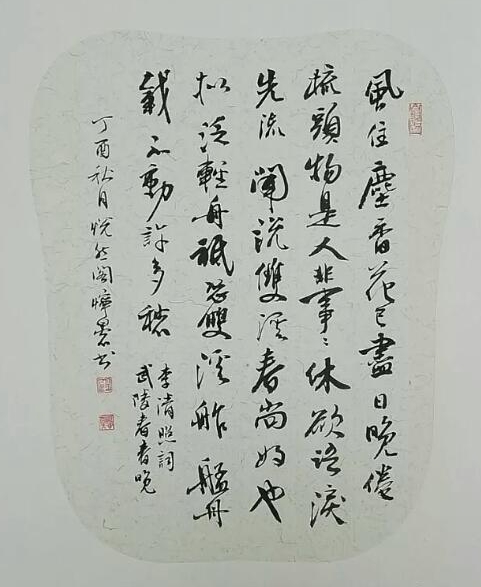 風住塵香花已盡日晚倦
梳頭物是人非事〻休欲語淚
先流聞說雙溪春尚好也
拟泛輕舟祗恐雙溪舴艋舟
載不動許多愁
李清照詞
武陵春春晚
丁酉秋月悅然閣墨書